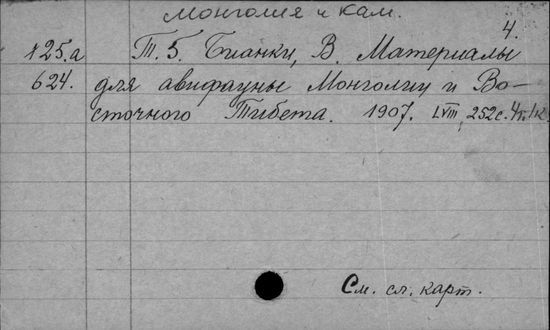 Монголия и Кам.
4.
125.а Т. 5. Бианки, В. Материалы
624. для авифауны Монголии и Во-
сточного Тибета. 1907. LVIII, 252 с. 4т. 1к.
См. сл. карт.